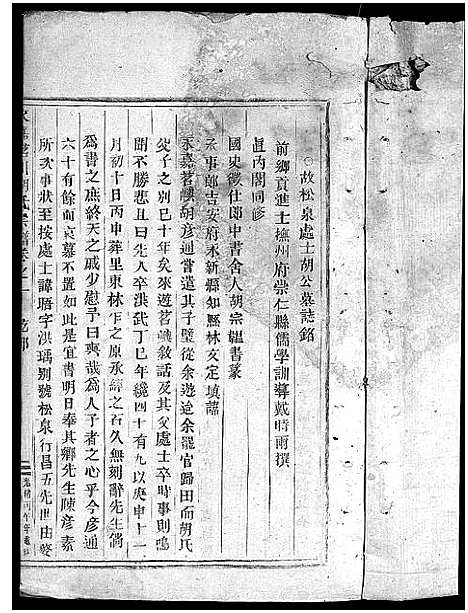 ○故松泉處士胡公墓誌銘
前鄉貢進士撫州府崇仁縣儒學訓導戴時雨撰
直內閣同修
國史徵仕郎中書舍人胡宗馧書篆
承事郎吉安府永新縣知縣林文定填諱
永嘉茗嶼胡彥通嘗遣其子璧從余遊迨余罷官歸田而胡氏
子則別已十年矣來遊茗嶼敘話及其父處士卒時事則嗚
咽不勝悲且曰先人卒洪武丁巳年纔四十有九以庚申十二
月初十日丙申葬里東林乍之原承終之石久無刻辭先生倘
爲書之庶終天之戚少慰予曰哀哉爲人子者之心乎今彥通
六十有餘而哀慕不置如此是宜書明日奉其鄉先生陳彥素
所次事狀至按處士諱晤字洪瑀別號松泉行昌五先世由婺
永嘉茗川胡氏宗譜卷之一